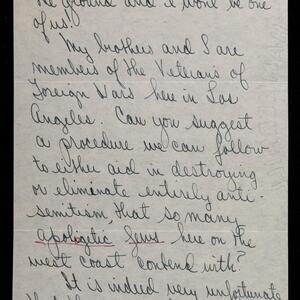 the ground and I won't be one
of us!
My brothers and I are
members of the Veterans of
Foreign Wars here in Los
Angeles. Can you suggest
a procedure we can follow
to either aid in destroying
or eliminate entirely anti-
semitism, that so many
apoligitic Jews here on the
west coast contend with?
It is indeed very unfortunate